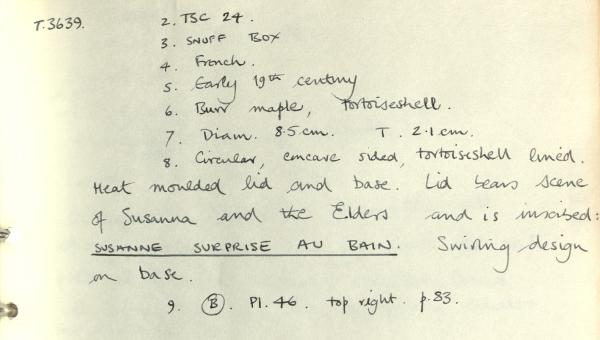 T.3639. 2. TSC 24.
3. SNUFF BOX
4. French.
5. Early 19th century
6. Burr maple, tortoiseshell.
7. Diam. 8.5cm. T. 2.1cm.
8. Circular, concave sided, tortoiseshell lined.
Heat moulded lid and base. Lid bears scene
of Susanna and the Elders and is inscribed:
SUSANNE SURPRISE AU BAIN. Swirling design
on base.
9. B. Pl. 46. top right. p.83.